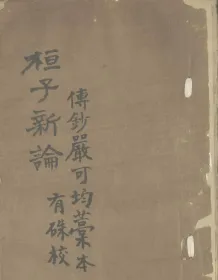 桓子新論
傳鈔嚴可均藁本
有硃校